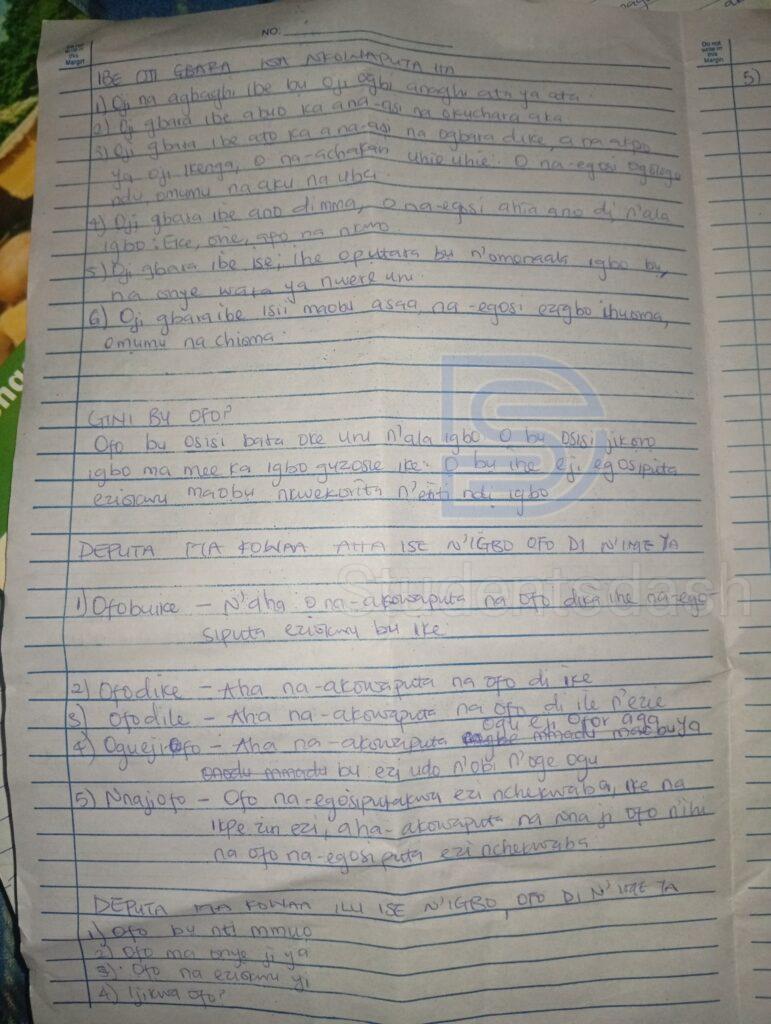 NO:
Do not write in this Margin
Do not write in this Margin
IBE OJI GBARA NA NKOWAPUTA HA
1) Oji na agbaghi ibe bu Oji Ogbi anaghi ata ya ata
2) Oji gbara ibe abuo ka ana-asi na okuchara aka
3) Oji gbara ibe ato ka ana-asi na ogbara dike, a na akpo
ya oji Ikenga, o na-achakarị uhie uhie. O na-egosi ogologo
ndu, omumu na aku na uba.
4) Oji gbara ibe ano di mma, o na-egosi ahia ano di n'ala
igbo: Eke, orie, afo na nkwo
5) Oji gbara ibe ise; ihe oputara bu n'omenaala igbo bu,
na onye wara ya nwere uru.
6) Oji gbara ibe isii maobu asaa, na-egosi ezigbo ihuoma,
omumu na chioma.
GINI BU OFO?
Ofo bu osisi bara oke uru n'ala igbo O bu osisi jikoro
igbo ma mee ka igbo guzosie ike. O bu ihe eji egosiputa
eziokwu maobu nkwekorita n'etiti ndu igbo
DEPUTA MA KOWAA AHA ISE N'IGBO OFO DI N'IME YA
1) Ofobuike - N'aha o na-akowaputa na ofo dika ihe na-ego-
siputa eziokwu bu ike.
2) Ofodike - Aha na-akowaputa na ofo di ike
3) Ofodile - Aha na-akowaputa na ofo di ile n'ezie
4) Ogueji ofo - Aha na-akowaputa ogu eji ofor aga
bu ezi udo n'obi n'oge ogu
5) Nnajiofo - Ofo na-egosiputakwa ezi nchekwaba, ike na
ikpe ziri ezi, aha-akowaputa na nna ji ofo n'ihi
na ofo na-egosiputa ezi nchekwaba
DEPUTA MA KOWAA ILU ISE N'IGBO, OFO DI N'IME YA
1) Ofo bu nti mmuo
2) Ofo ma onye ji ya
3) Ofo na eziokwu yi
4) Ijikwa ofo?
5)
Studentsdash